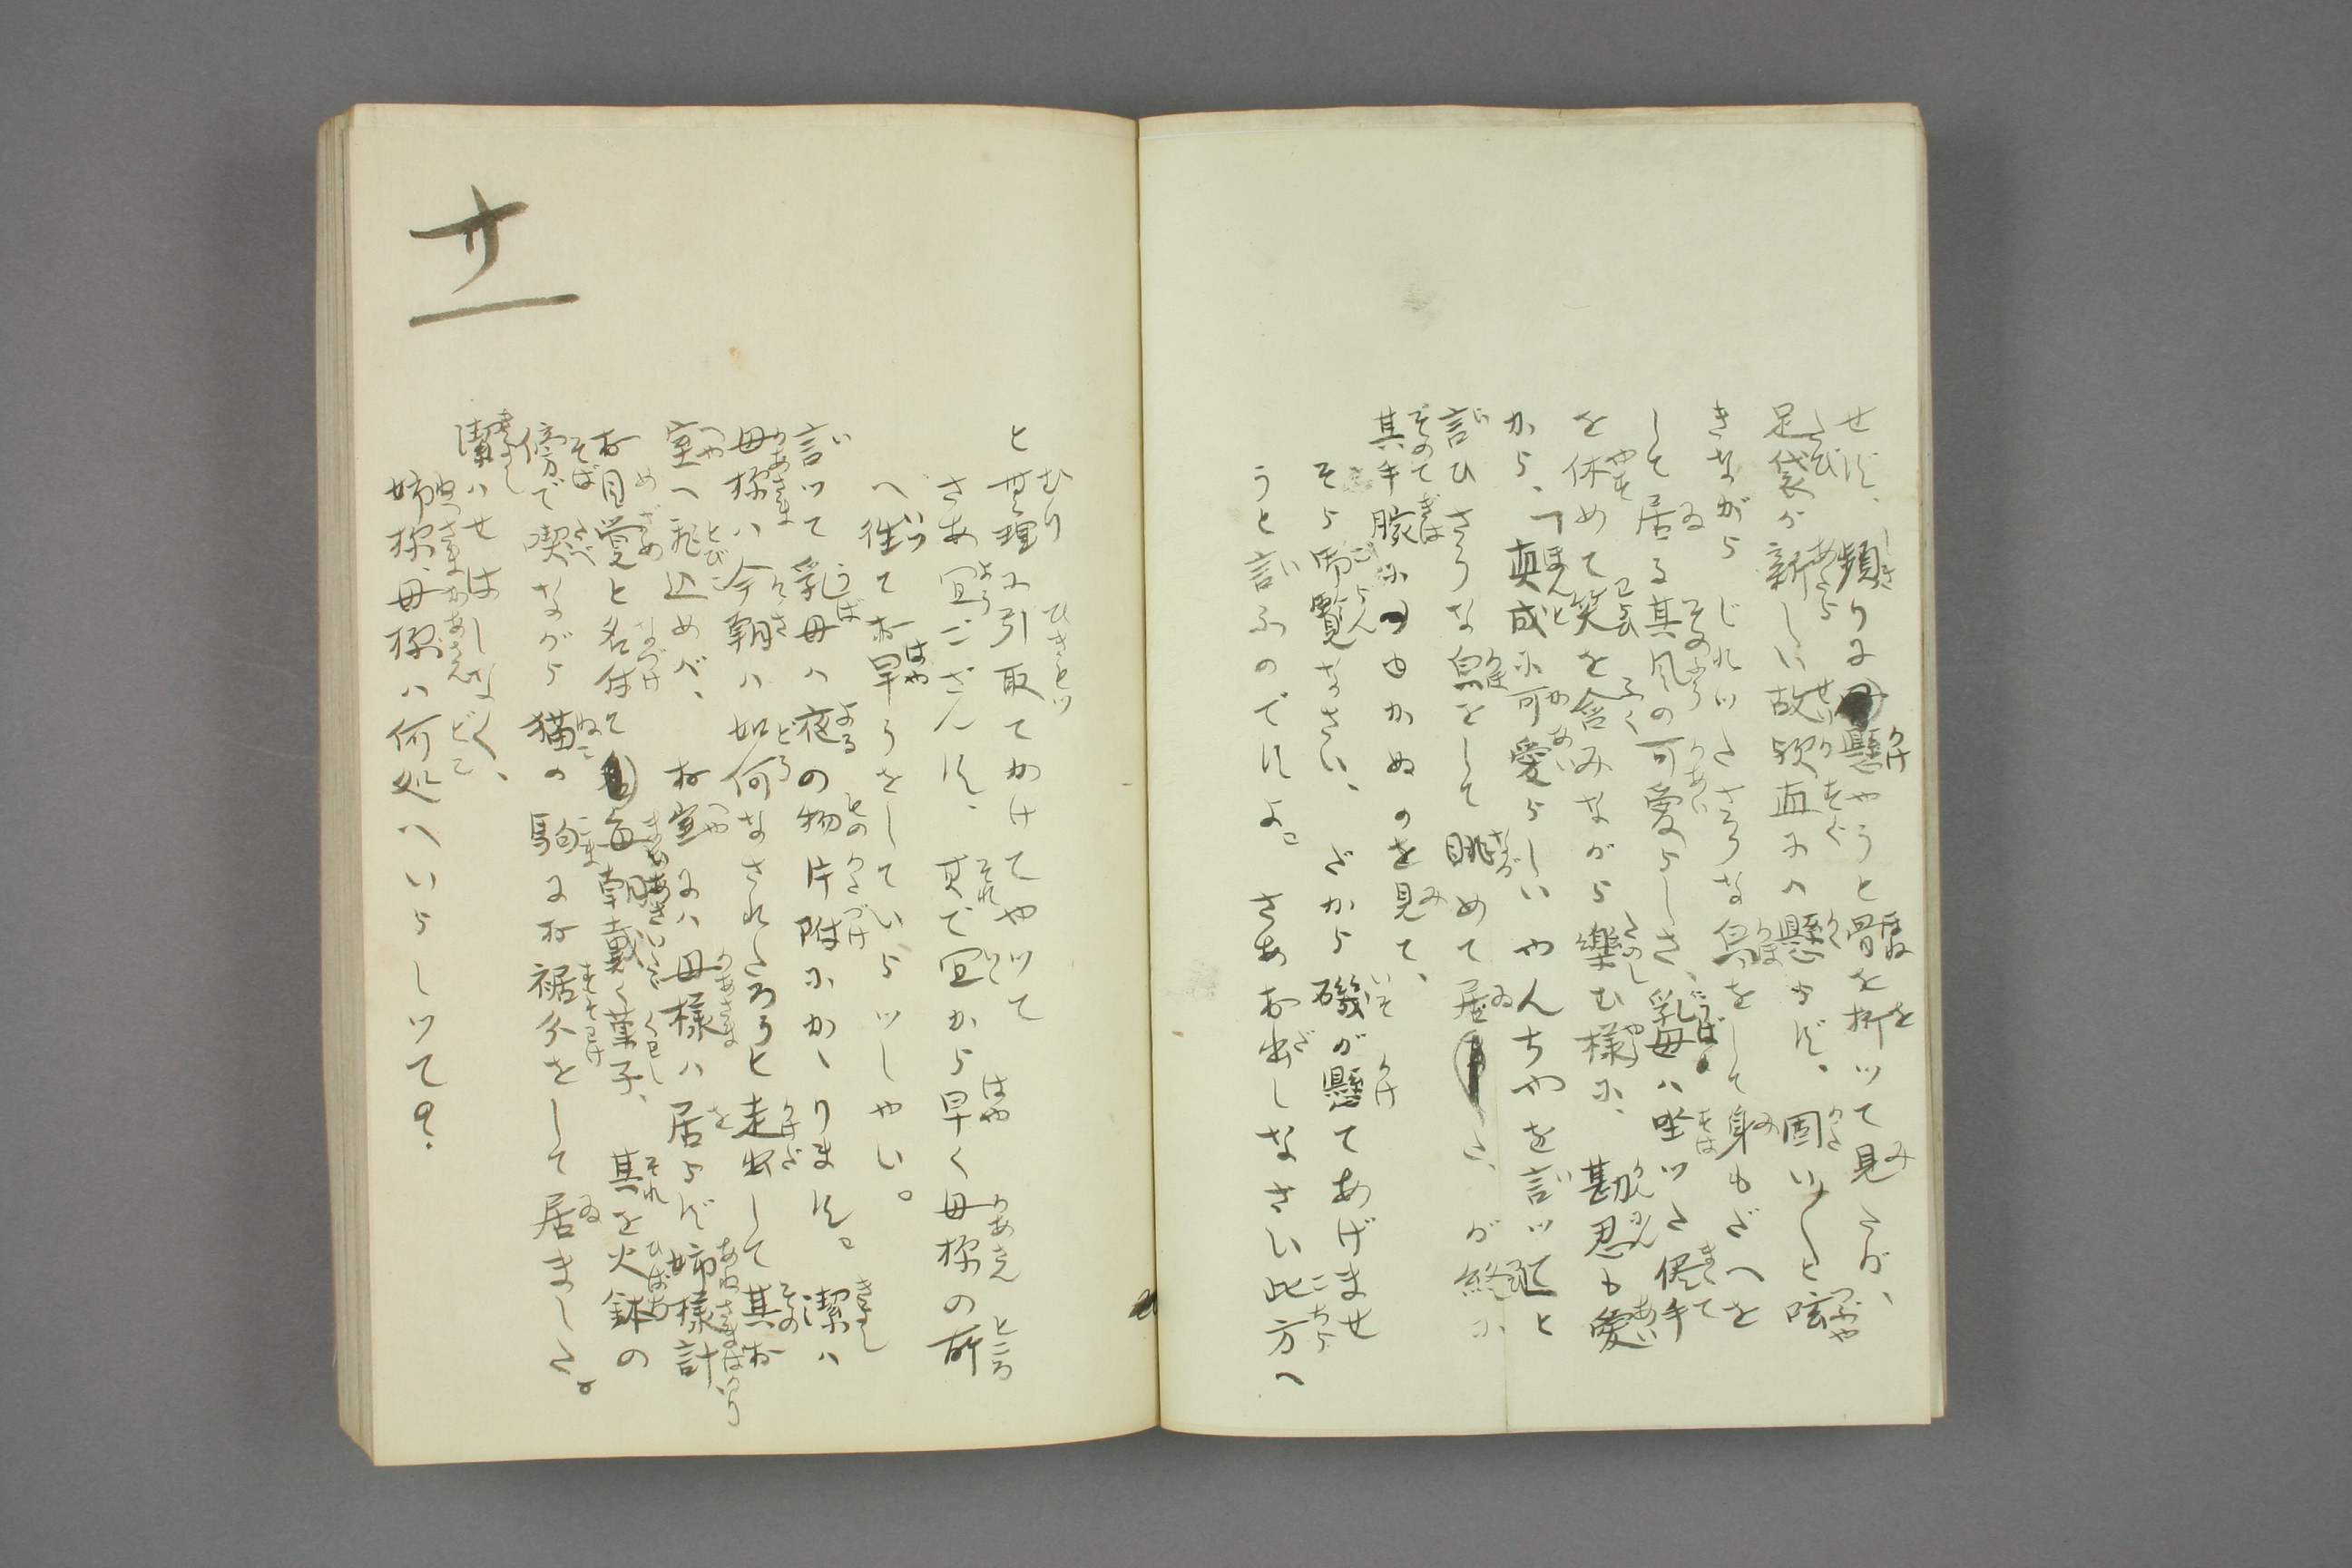 せず、頻りに懸やうと骨を折ツて見たが、
足袋が新しい故歟直にハ懸らず、固い〳〵と呟
きながら じれツたさうな皃をして身もだへを
して居る其風の可愛らしさ、乳母ハ坐ツた儘手
を休めて笑を含みながら樂む様に、勘忍も愛
から、「真成に可愛らしいやんちやを言ツてと
言ひさうな皃をして眺めて居た、が終に
其手際にゆかぬのを見て、
そら御覧なさい、だから磯が懸てあげませ
うと言ふのですよ。さあお出しなさい此方へ
と無理に引取てかけてやツて
さあ宜ござんす、夫で宜から早く母様の所
へ徃てお早うをしていらツしやい。
言ツて乳母ハ夜の物片附にかゝります。潔ハ
母様ハ今朝ハ如何なされたろうと走出して其お
室へ飛込めバ、お室にハ母様ハ居らず姉様計
お目覺と名付て毎朝戴く菓子、其を火鉢の
傍で喫ながら猫の駒にお裾分をして居ました。
潔ハせはしなく、
姉様、母様ハ何処へいらしツて？
サ